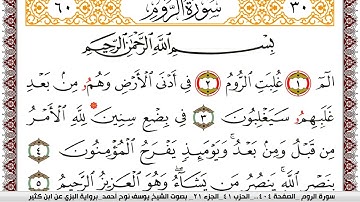 ٣٠ سُورَةُ الرُّومِ ٦٠
بِسْمِ اللَّهِ الرَّحْمَٰنِ الرَّحِيمِ
الٓمٓ ١ غُلِبَتِ الرُّومُ ٢ فِي أَدْنَى الْأَرْضِ وَهُمُو مِنْ بَعْدِ
غَلَبِهِمُو سَيَغْلِبُونَ ٣ فِي بِضْعِ سِنِينَ لِلَّهِ الْأَمْرُ
مِن قَبْلُ وَمِنْ بَعْدُ وَيَوْمَئِذٍ يَفْرَحُ الْمُؤْمِنُونَ ٤
بِنَصْرِ اللَّهِ يَنْصُرُ مَنْ يَشَاءُ وَهُوَ الْعَزِيزُ الرَّحِيمُ ٥
سورة الروم _ الصفحة ٤٠٤ _ الحزب ٤١ _ الجزء ٢١ _ بصوت الشيخ يوسف نوح أحمد _ برواية البزي عن ابن كثير